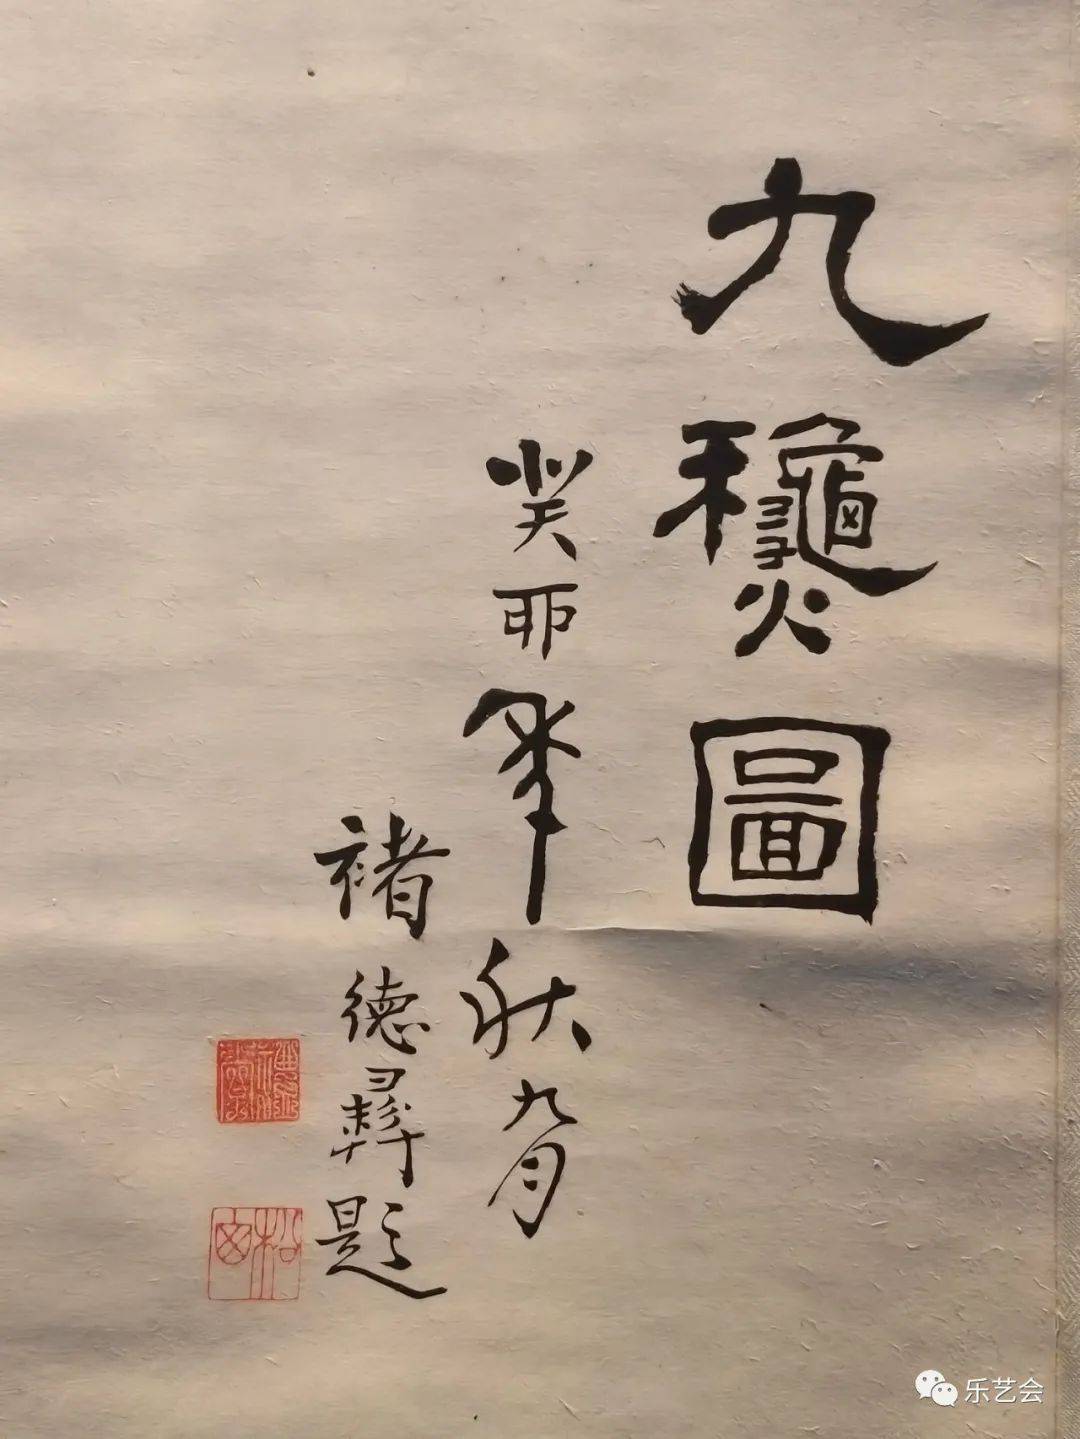 九𥤛圖
癸丣年秋九月
褚德彝題
松囪
乐艺会